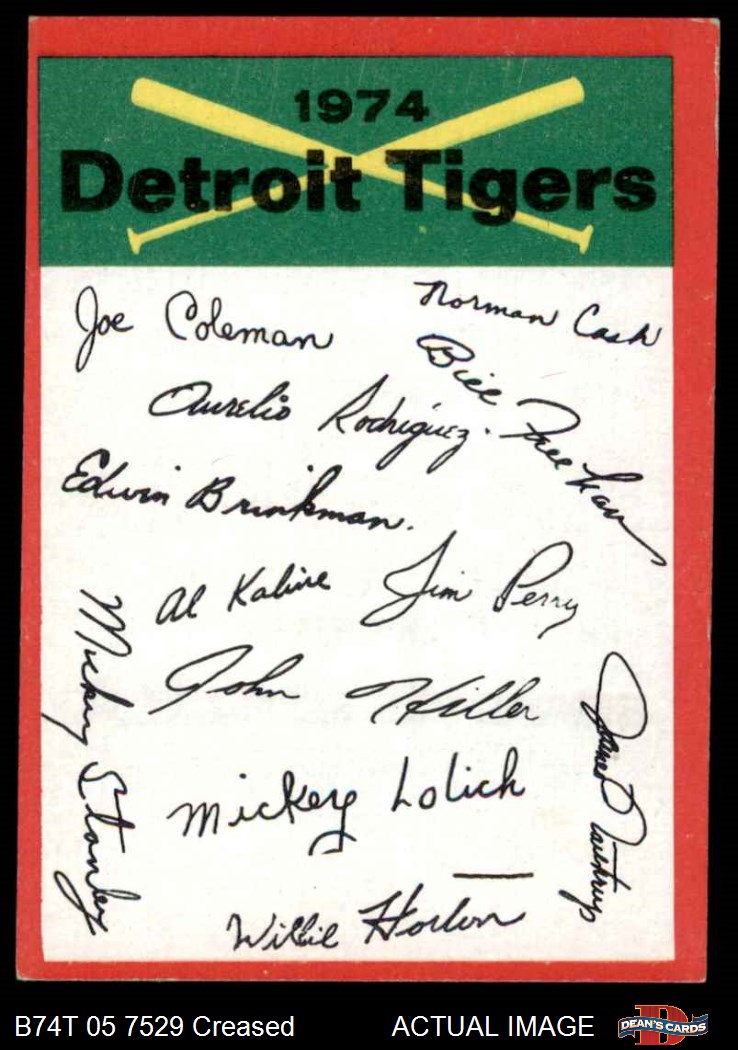 1974
Detroit Tigers
Joe Coleman
Norman Cash
Bill Freehan
Aurelio Rodriguez.
Edwin Brinkman.
Al Kaline
Jim Perry
Mickey Stanley
John Hiller
James D Northrup
Mickey Lolich
Willie Horton
B74T 05 7529 Creased
ACTUAL IMAGE
D
DEAN'S CARDS